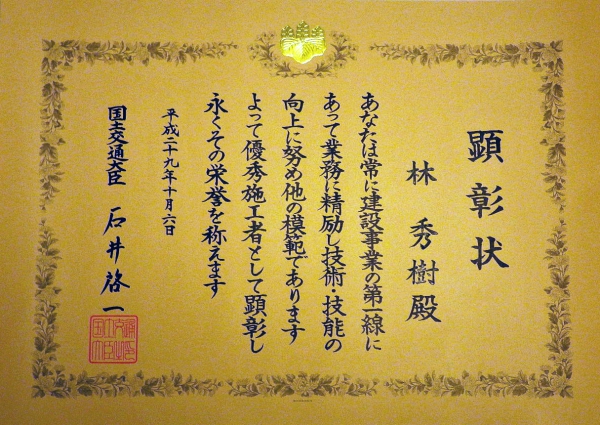 顕彰状
林秀樹殿
あなたは常に建設事業の第一線に
あって業務に精励し技術・技能の
向上に努め他の模範であります
よって優秀施工者として顕彰し
永くその栄誉を称えます
平成二十九年十月六日
国土交通大臣 石井啓一